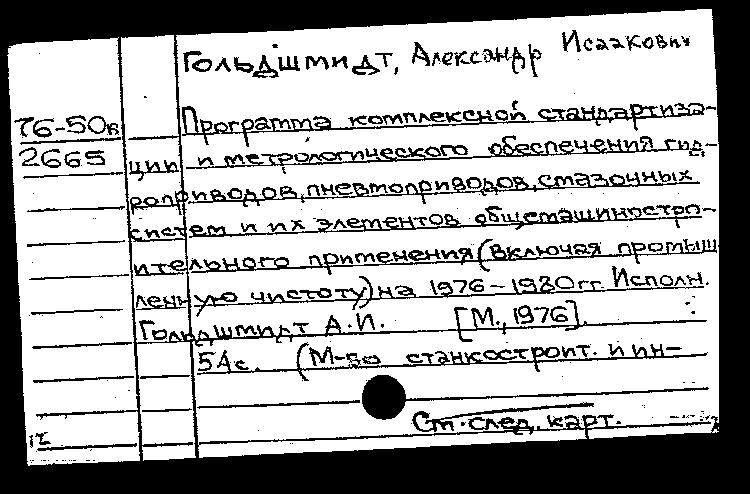 Гольдшмидт, Александр Исаакович
76-50в
2665
Программа комплексной стандартиза-
ции и метрологического обеспечения гид-
роприводов, пневмоприводов, смазочных
систем и их элементов общемашинострo-
ительного применения (включая промыш
ленную чистоту) на 1976-1980 гг. Исполн.
Гольдшмидт А.И. [М., 1976].
54 с. (М-во станкостроит. и ин-
См. след. карт.